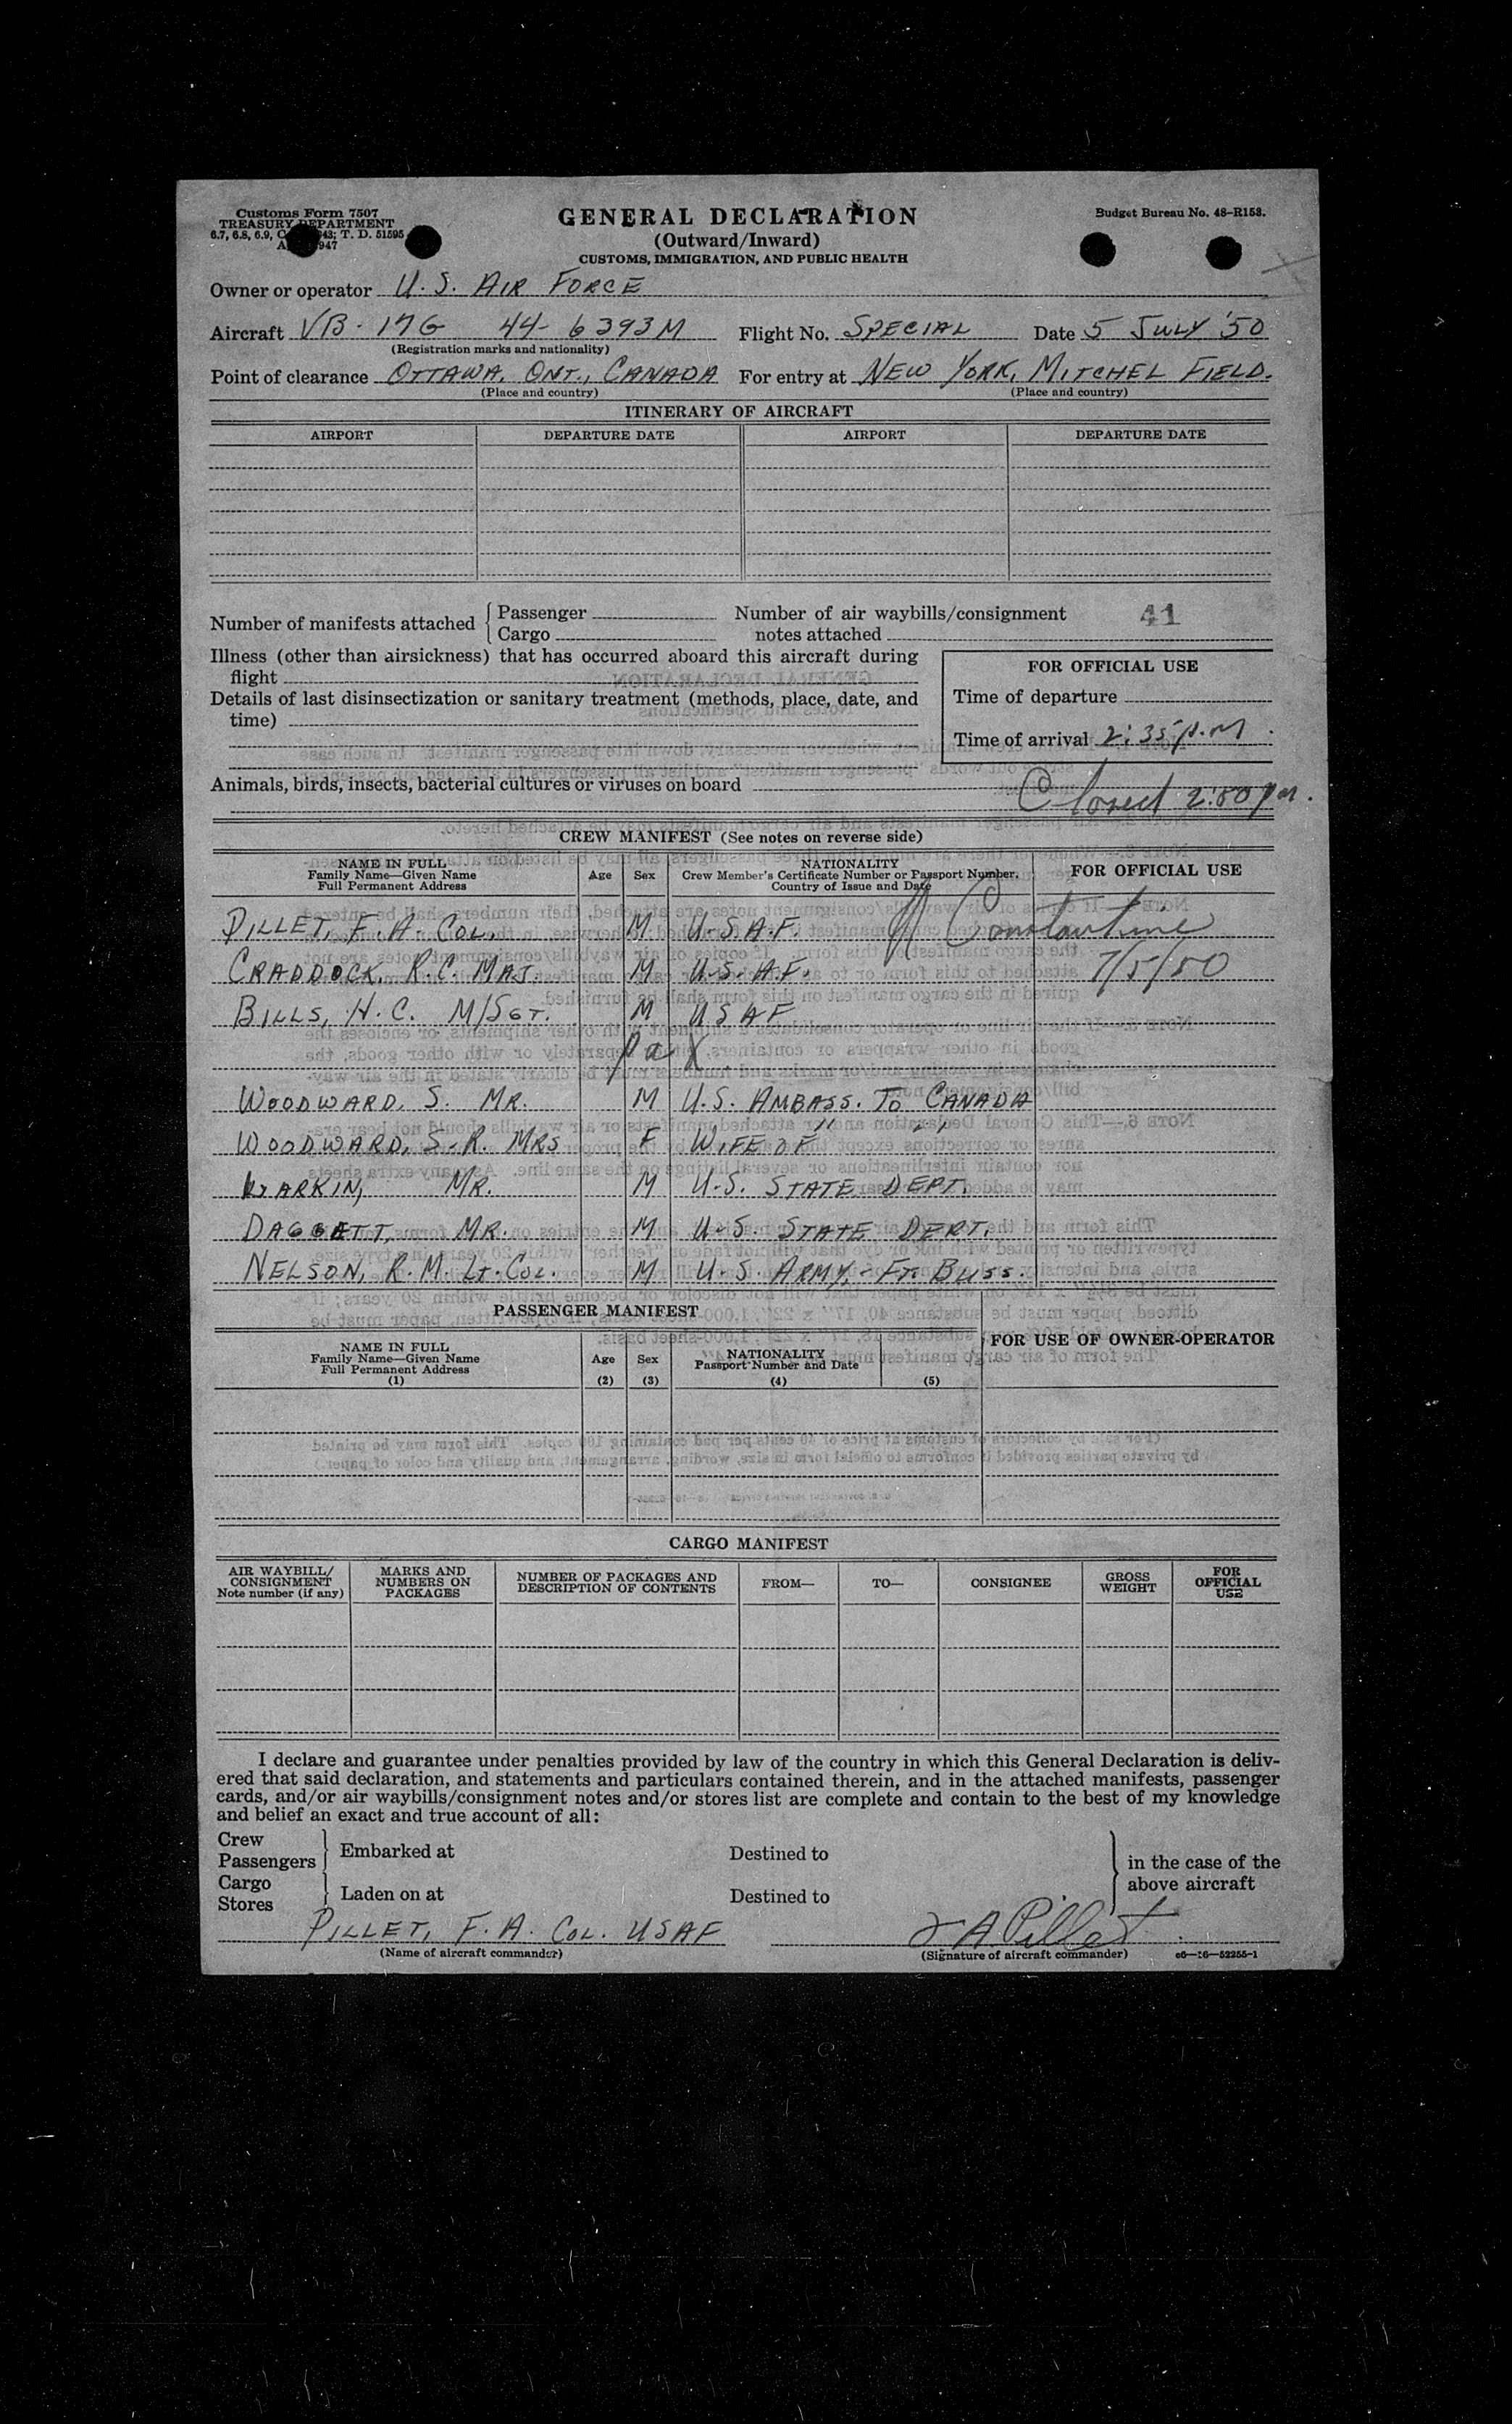 Customs Form 7507
TREASURY DEPARTMENT
GENERAL DECLARATION
(Outward/Inward)
CUSTOMS, IMMIGRATION, AND PUBLIC HEALTH
Budget Bureau No. 48-R153.
Owner or operator U.S. AIR FORCE
Aircraft VB-17G 44-6393M Flight No. SPECIAL Date 5 JULY '50
(Registration marks and nationality)
Point of clearance OTTAWA, ONT., CANADA For entry at NEW YORK, MITCHEL FIELD.
(Place and country) (Place and country)
ITINERARY OF AIRCRAFT
AIRPORT DEPARTURE DATE AIRPORT DEPARTURE DATE
Number of manifests attached { Passenger
Cargo
Number of air waybills/consignment
notes attached
41
Illness (other than airsickness) that has occurred aboard this aircraft during
flight
Details of last disinsectization or sanitary treatment (methods, place, date, and
time)
FOR OFFICIAL USE
Time of departure
Time of arrival 2:35 p.m.
Animals, birds, insects, bacterial cultures or viruses on board
Closed 2:50 pm.
CREW MANIFEST (See notes on reverse side)
NAME IN FULL
Family Name—Given Name
Full Permanent Address
Age Sex
NATIONALITY
Crew Member's Certificate Number or Passport Number,
Country of Issue and Date
FOR OFFICIAL USE
PILLET, F.A. COL. M U.S.A.F. Constantine
CRADDOCK, R.C. MAJ. M U.S.A.F. 7/5/50
BILLS, H.C. M/SGT. M USAF
Pax
WOODWARD, S. MR. M U.S. AMBASS. TO CANADA
WOODWARD, S.R. MRS F WIFE OF " "
LARKIN, MR. M U.S. STATE DEPT.
DAGGETT, MR. M U.S. STATE DEPT.
NELSON, R.M. LT. COL. M U.S. ARMY, - FT. BLISS.
PASSENGER MANIFEST
NAME IN FULL
Family Name—Given Name
Full Permanent Address
(1)
Age
(2)
Sex
(3)
NATIONALITY
Passport Number and Date
(4)
(5)
FOR USE OF OWNER-OPERATOR
CARGO MANIFEST
AIR WAYBILL/
CONSIGNMENT
Note number (if any)
MARKS AND
NUMBERS ON
PACKAGES
NUMBER OF PACKAGES AND
DESCRIPTION OF CONTENTS
FROM—
TO—
CONSIGNEE
GROSS
WEIGHT
FOR
OFFICIAL
USE
I declare and guarantee under penalties provided by law of the country in which this General Declaration is deliv-
ered that said declaration, and statements and particulars contained therein, and in the attached manifests, passenger
cards, and/or air waybills/consignment notes and/or stores list are complete and contain to the best of my knowledge
and belief an exact and true account of all:
Crew
Passengers
Embarked at Destined to
Cargo
Stores
Laden on at Destined to
in the case of the
above aircraft
PILLET, F.A. COL. USAF F A Pillet
(Name of aircraft commander) (Signature of aircraft commander) c6—16—52255-1